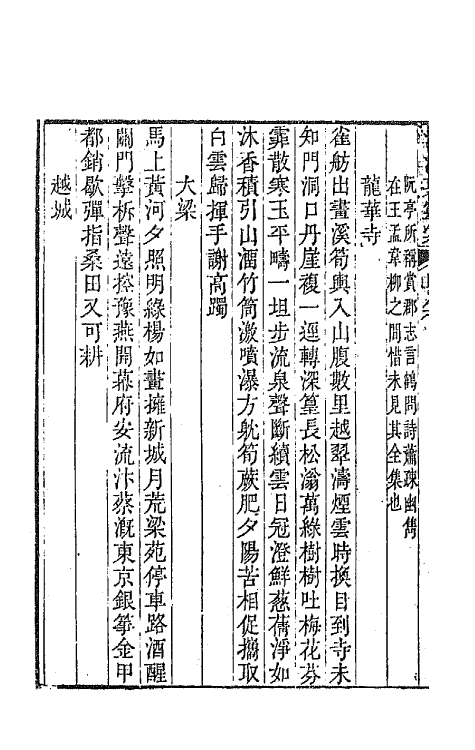 阮亭所稱賞郡志言鶴問詩蕭疎幽雋
在王孟韋柳之間惜未見其全集也
龍華寺
雀舫出畫溪筍輿入山腹數里越翠濤煙雲時換目到寺未
知門洞口丹崖複一逕轉深篁長松滃萬綠樹樹吐梅花芬
霏散寒玉平疇一坦步流泉聲斷續雲日冠澄鮮慈蒨淨如
沐香積引山溜竹筒激噴瀑方躭筍蕨肥夕陽苦相促攜取
白雲歸揮手謝高躅
大梁
馬上黃河夕照明綠楊如畫擁新城月荒梁苑停車路酒醒
關門擊柝聲遠控豫燕開幕府安流汴蔡溉東京銀箏金甲
都銷歇彈指桑田又可耕
越城